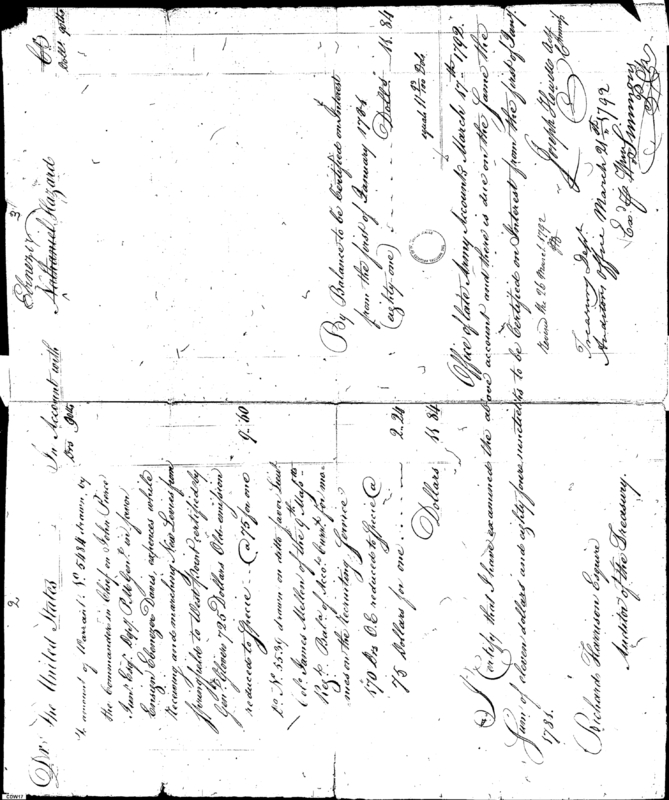 2
3
Dr. The United States In Account with Ebenezer Nathaniel Hazard Cr.
Drs 90ths
Dolls 90ths
To amount of Warrant No. 5484 drawn by
the Commander in Chief on John Pierce
Junr. Esqr. Depy. P.M. Genl. in favor
Ensign Ebenezer Davis, expences while
receiving and marching New Levies from
Springfield to West point certified by
Genl. Glovers 725 Dollars Old emission
reduced to Specie @ 75 for one
9..60
Do. No. 5539 drawn on ditto favor Lieut
Col. James Mellen of the 9 Massts
Regt. Bala. of Acco. Certd. for mo-
nies on the Recruiting Service
170 Drs O.E. reduced to Specie @
75 Dollars for one
2..24
Dollars 11.. 84
By Balance to be Certified on Interest
from the first of January 1781
(eighty one) Dolls. 11.. 84
equals 11 Dols
Office of late Army Accounts March 17th 1792.
I Certify that I have examined the above account and there is due on the Same the
Sum of eleven dollars and eighty four ninetieths to be Certified on Interest from the first of Jany
1781.
Joseph Howell Actg
Richard Harrison Esquire
Auditor of the Treasury.
26 March 1792
Treasury Dept.
Auditors Office March 21st 1792
Exd. by Wm Simmons
CDW17